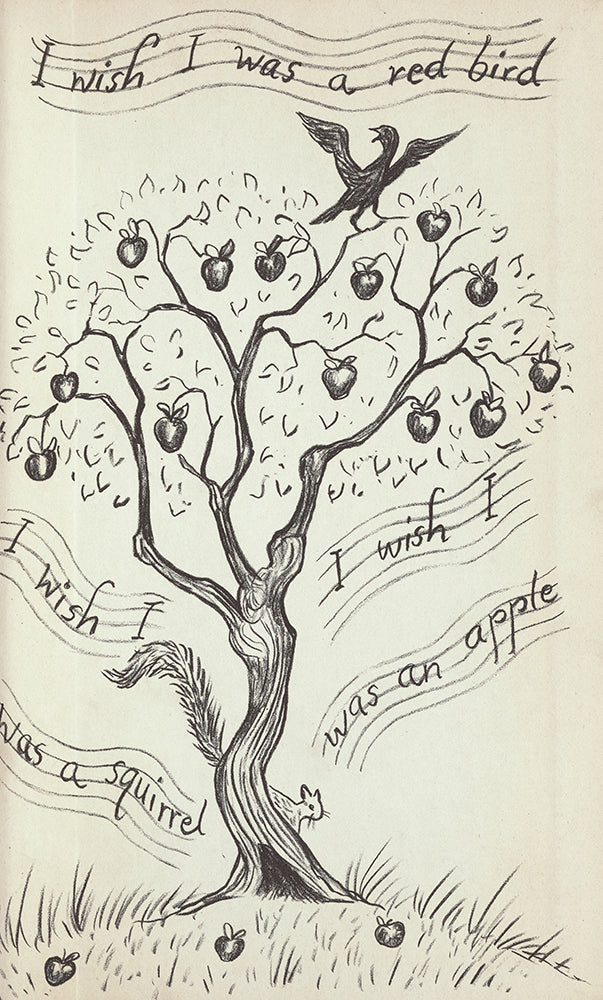 I wish I was a red bird
I wish I
was an apple
I wish I
was a squirrel